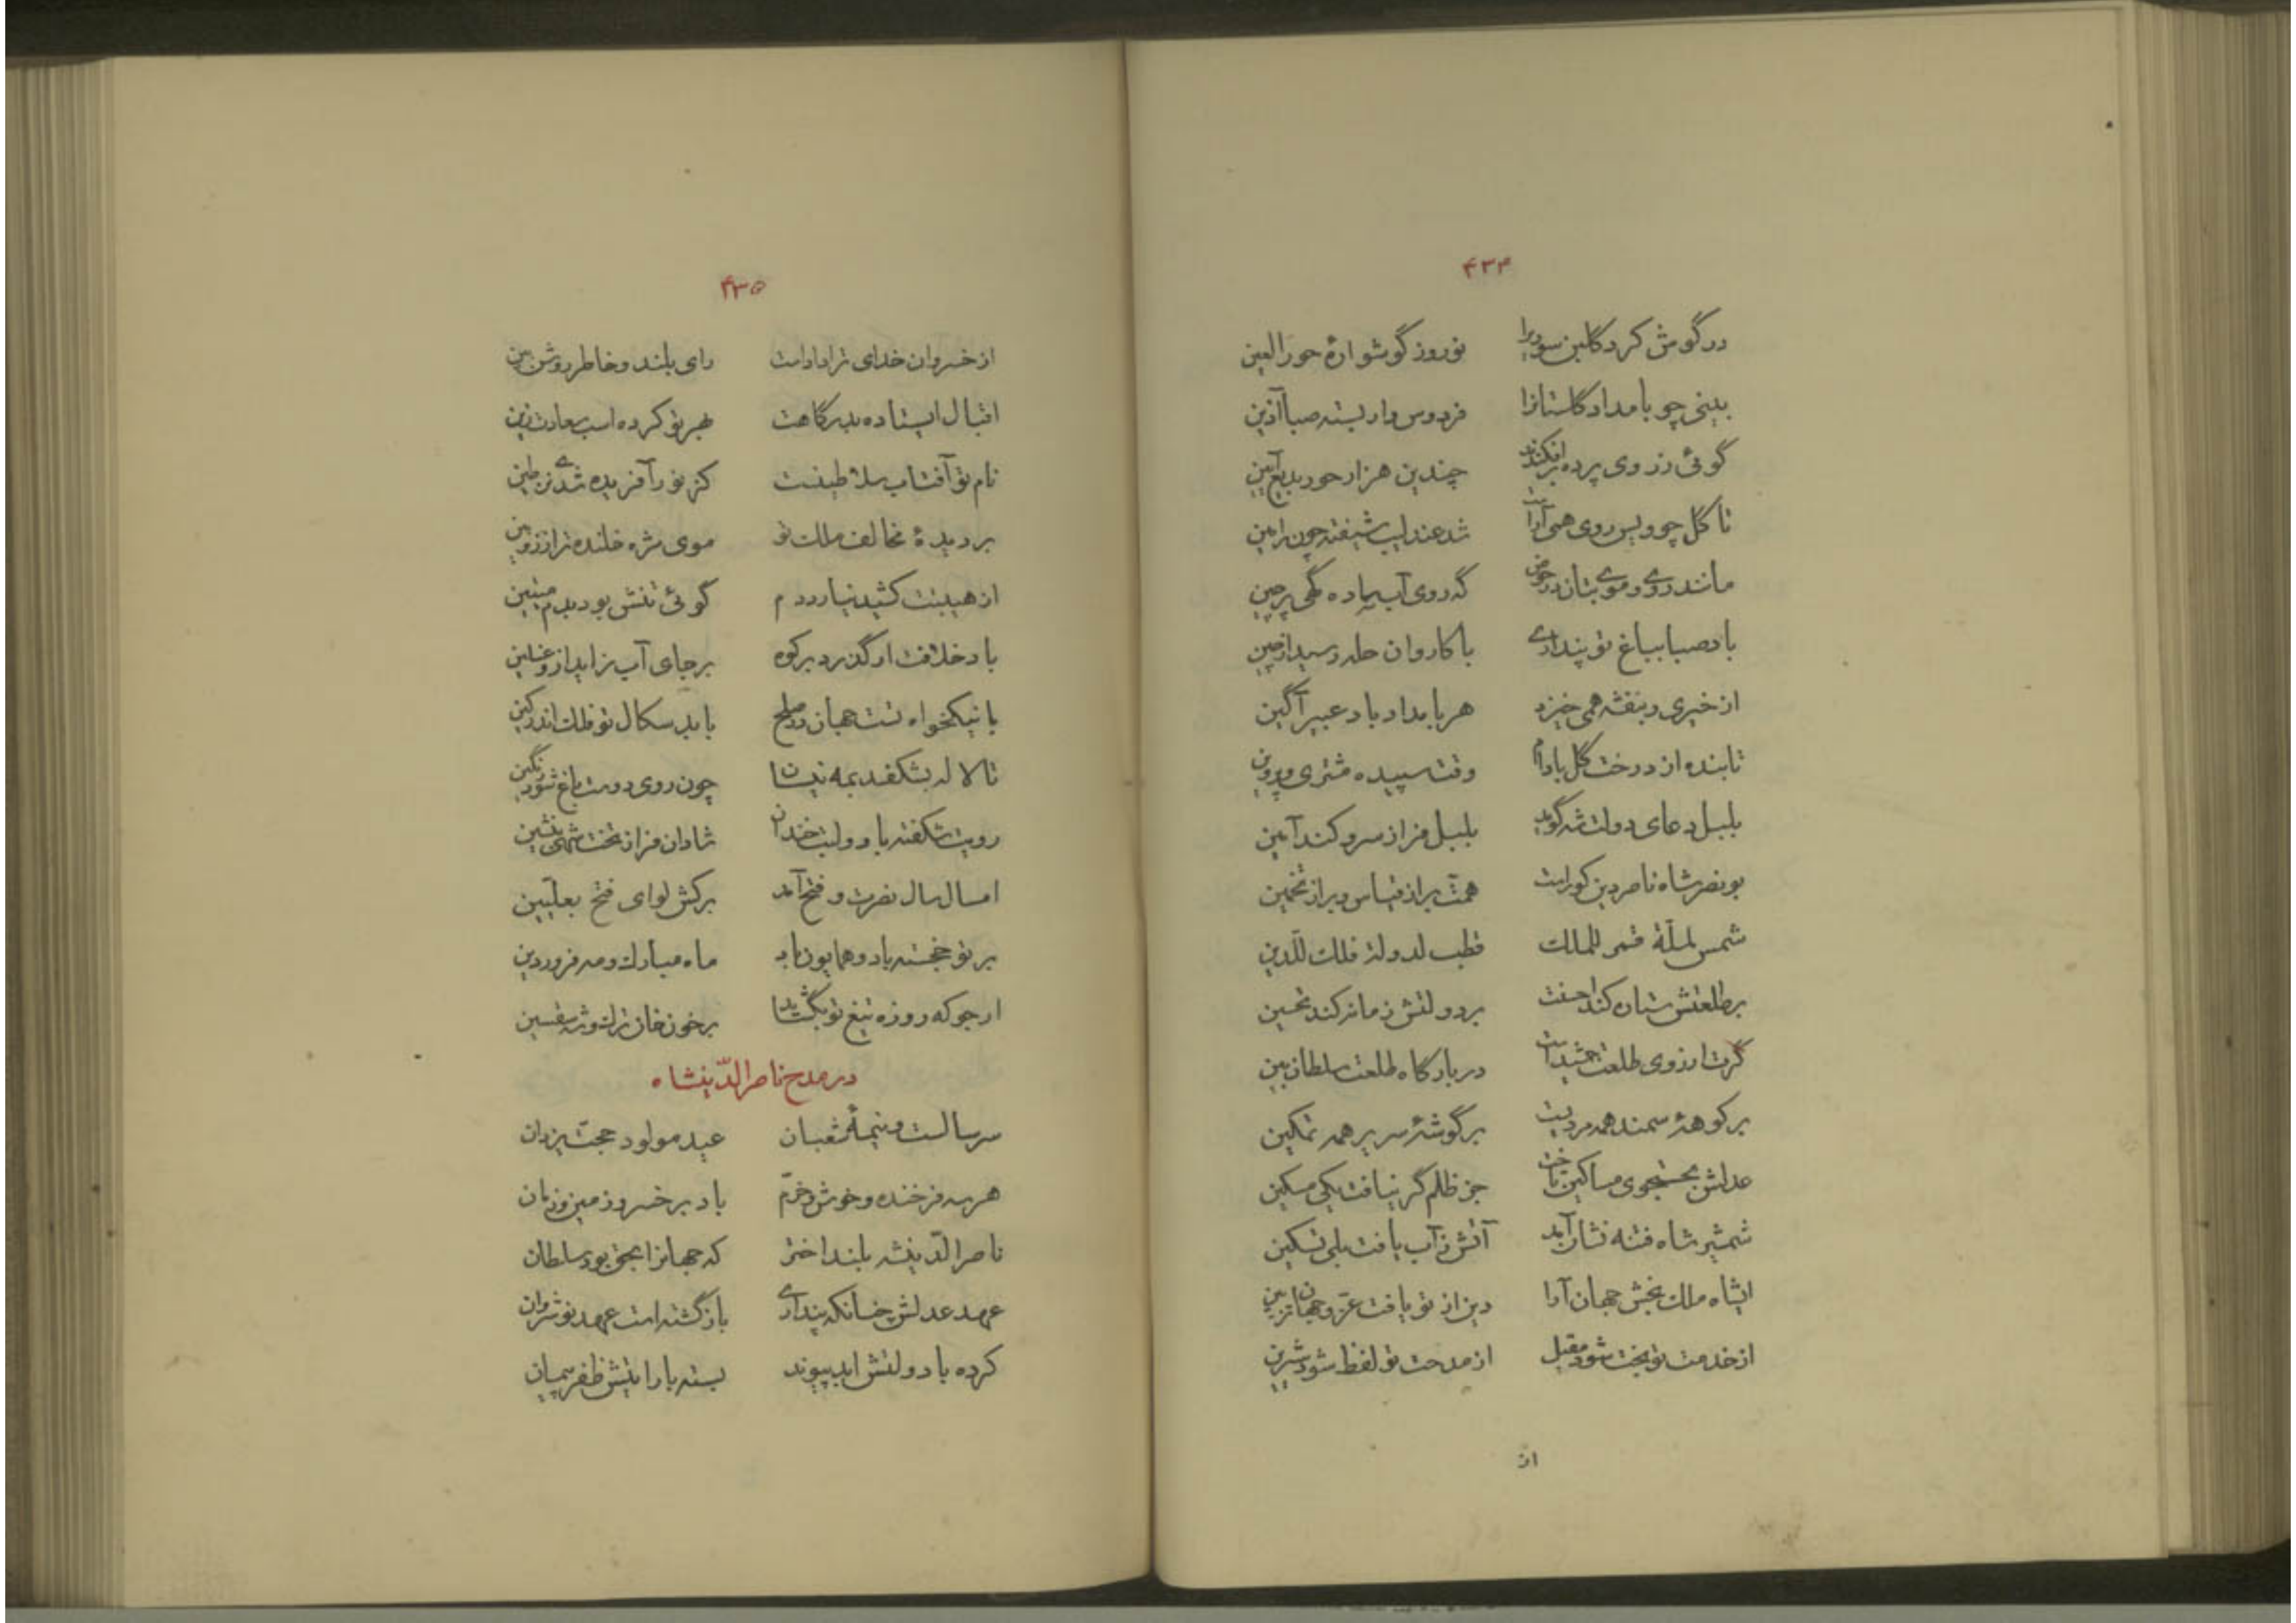 ۴۳۴
در گوش کرد گلبن سوری را نوروز گوشوارهٔ حورالعین
بینی چو بامداد گلستانرا فردوس وار بسته صبا آذین
گوئی ز روی پرده برافکندند چندین هزار حور بدیع آیین
تا گل چو ویس روی همی آراست شد عندلیب شیفته چون رامین
مانند روی و موی بتان در حوض گه روی آب ساده گهی پرچین
باد صبا بباغ تو پنداری با کاروان حله رسید از چین
از خیری و بنفشه همی خیزد هر بامداد باد عبیرآگین
تابنده از درخت گل بادام وقت سپیده مشتری و پروین
بلبل دعای دولت شه گوید بلبل فراز سرو کند آمین
بونصر شاه ناصر دین کوراست همت بر از قیاس و بر از تخمین
شمس لملّة قمر للملك قطب لدولة فلك للّدین
بر طلعتش ستاره کند احسنت بر دولتش زمانه کند تحسین
گرت ارزوی طلعت جمشید است در بارگاه طلعت سلطان بین
بر کوههٔ سمند همه مردیست بر گوشهٔ سریر همه تمکین
عدلش بجستجوی مساکین تاخت جز ظلم گر نیافت یکی مسکین
شمشیر شاه فتنه نشان آمد آتش ز آب یافت بلی تسکین
ایشاه ملك بخش جهان آرا دین از تو یافت عزّ و جهان تزیین
از خدمت تو بخت شود مقبل از مدحت تو لفظ شود شیرین
از
۴۳۵
از خسروان خدای ترا دادست رای بلند و خاطر روشن بین
اقبال ایستاده بدرگاهت بهر تو کرده اسب سعادت زین
نام تو آفتاب سلاطینست کز نور آفریده شدی نز طین
بر دیدهٔ مخالف ملك تو موی مژه خلنده تر از زوبین
از هیبتت کشید نیارد دم گوئی تنش بود بدم تنین
باد خلافت ار گذرد بر کوه بر جای آب زاید ازو غسلین
با نیکخواه تست جهان در صلح با بد سکال تو فلك اندر کین
تا لاله بشکفد بمه نیسان چون روی دوست باغ شود رنگین
رویت شکفته باد و لبت خندان شادان فراز تخت شهی بنشین
امسال سال نصرت و فتح آمد برکش لوای فتح بعلّیین
بر تو خجسته باد و همایون باد ماه مبارك و مه فروردین
ارجو که روزه تیغ تو بگشاید بر خون خان ترك و شه سقسین
در مدح ناصرالدّینشاه
سر سالست و نیمهٔ شعبان عید مولود حجّت یزدان
هر سه فرخنده و خوش و خرّم باد بر خسرو زمین و زمان
ناصرالدّینشه بلند اختر که جهانرا بحق بود سلطان
عهد عدلش چنانکه پنداری بازگشته است عهد نوشروان
کرده با دولتش ابد پیوند بسته با رایتش ظفر پیمان